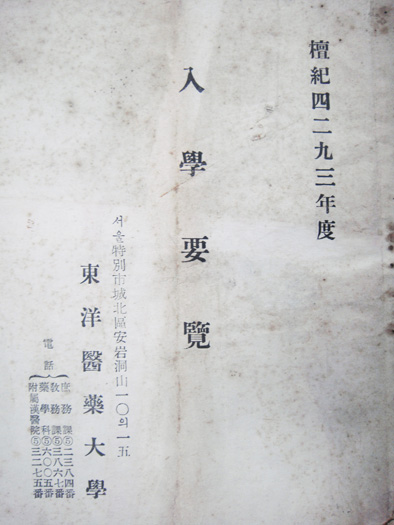 檀紀四二九三年度
入學要覽
서울特別市城北區安岩洞山一〇의一五
東洋醫藥大學
電話
庶務課⑤二三八四番
敎務課⑤三八六七番
藥學科⑤六〇〇五番
附屬漢醫院⑤三二七五番